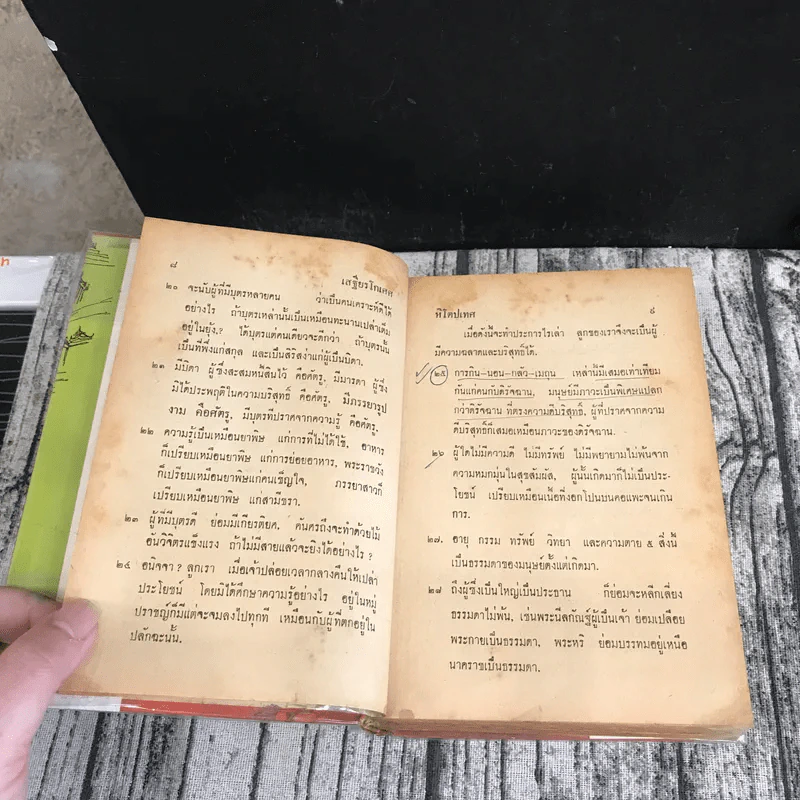 ๘
เสฐียรโกเศศ
๒๐ จะนับผู้ที่มีบุตรหลายคน ว่าเป็นคนเคราะห์ดีได้
อย่างไร ถ้าบุตรเหล่านั้นเป็นเหมือนทะนานเปล่าเต็ม
อยู่ในยุ้ง? ได้บุตรแต่คนเดียวจะดีกว่า ถ้าบุตรนั้น
เป็นที่พึ่งแก่สกุล และเป็นสิริสง่าแก่ผู้เป็นบิดา.
๒๑ มีบิดา ผู้ซึ่งสะสมหนี้สินไว้ คือศัตรู, มีมารดา ผู้ซึ่ง
มิได้ประพฤติในความบริสุทธิ์ คือศัตรู, มีภรรยารูป
งาม คือศัตรู, มีบุตรที่ปราศจากความรู้ คือศัตรู.
๒๒ ความรู้เป็นเหมือนยาพิษ แก่การที่ไม่ได้ใช้, อาหาร
ก็เปรียบเหมือนยาพิษ แก่การย่อยอาหาร, พระราชวัง
ก็เปรียบเหมือนยาพิษแก่คนเข็ญใจ, ภรรยาสาวก็
เปรียบเหมือนยาพิษ แก่สามีชรา.
๒๓ ผู้ที่มีบุตรดี ย่อมมีเกียรติยศ. คันศรถึงจะทำด้วยไม้
อันวิจิตรแข็งแรง ถ้าไม่มีสายแล้วจะยิงได้อย่างไร?
๒๔ อนิจจา? ลูกเรา เมื่อเจ้าปล่อยเวลากลางคืนให้เปล่า
ประโยชน์ โดยมิได้ศึกษาความรู้อย่างไร อยู่ในหมู่
ปราชญ์ก็มีแต่จะจมลงไปทุกที เหมือนกับผู้ที่ตกอยู่ใน
ปลักฉะนั้น.
หิโตปเทศ
๙
เมื่อดังนี้จะทำประการไรเล่า ลูกของเราจึงจะเป็นผู้
มีความฉลาดและบริสุทธิ์ได้.
๒๕ การกิน-นอน-กลัว-เมถุน เหล่านี้มีเสมอเท่าเทียม
กันแก่คนกับดิรัจฉาน, มนุษย์มีภาวะเป็นพิเศษแปลก
กว่าดิรัจฉาน ที่ตรงความดีบริสุทธิ์, ผู้ที่ปราศจากความ
ดีบริสุทธิ์ก็เสมอเหมือนภาวะของดิรัจฉาน.
๒๖ ผู้ใดไม่มีความดี ไม่มีทรัพย์ ไม่มีพยายามไม่พ้นจาก
ความหมกมุ่นในสุขสัมผัส, ผู้นั้นเกิดมาก็ไม่เป็นประ-
โยชน์ เปรียบเหมือนเนื้อที่งอกโปนบนคอแพะจนเกิน
การ.
๒๗. อายุ กรรม ทรัพย์ วิทยา และความตาย ๕ สิ่งนี้
เป็นธรรมดาของมนุษย์ตั้งแต่เกิดมา.
๒๘ ถึงผู้ซึ่งเป็นใหญ่เป็นประธาน ก็ย่อมจะหลีกเลี่ยง
ธรรมดาไม่พ้น, เช่นพระนีลกัณฐ์ผู้เป็นเจ้า ย่อมเปลือย
พระกายเป็นธรรมดา, พระหริ ย่อมบรรทมอยู่เหนือ
นาคราชเป็นธรรมดา.